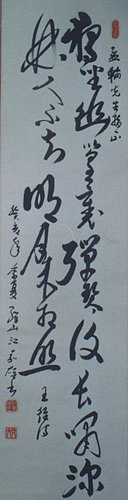 先生
獨坐幽篁裏彈琴復長嘯深
林人不知明月來相照
王維詩
季夏